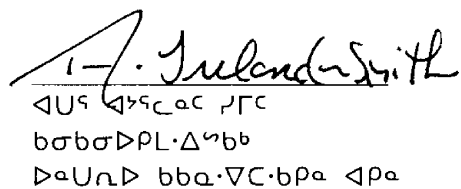 A. Ireland-Smith
ᐊᑌᕐ ᐊᔾᕐᓪᓐᑦ ᔅᒥᑦ
ᑲᓂᑲᓂᐅᑭᒪᐧᐃᔅᑲᒃ
ᐅᓐᑌᕆᐅ ᑲᑲᓇᐧᐁᑕᐧᑲᑭᓐ ᐊᑭᓐ